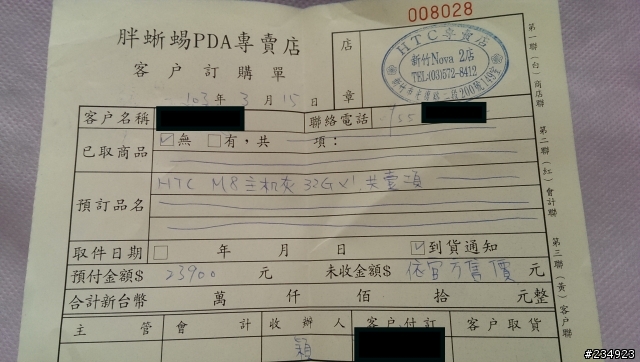 008028
胖蜥蜴PDA專賣店
客戶訂購單
店章
HTC專賣店
新竹Nova 2店
TEL:(03)572-8412
103年3月15日
客戶名稱
聯絡電話
55
已取商品
☑無 □有，共 項：
預訂品名
HTC M8 主机灰 32G X1 共壹項
取件日期 □ 年 月 日 ☑到貨通知
預付金額$ 23900 元 未收金額$ 依官方售價 元
合計新台幣 萬 仟 佰 拾 元整
主管 會計 收辦人 客戶付訂 客戶取貨
穎
第一聯(白)商店聯
第二聯(紅)會計聯
第三聯(黃)客戶聯
#234923